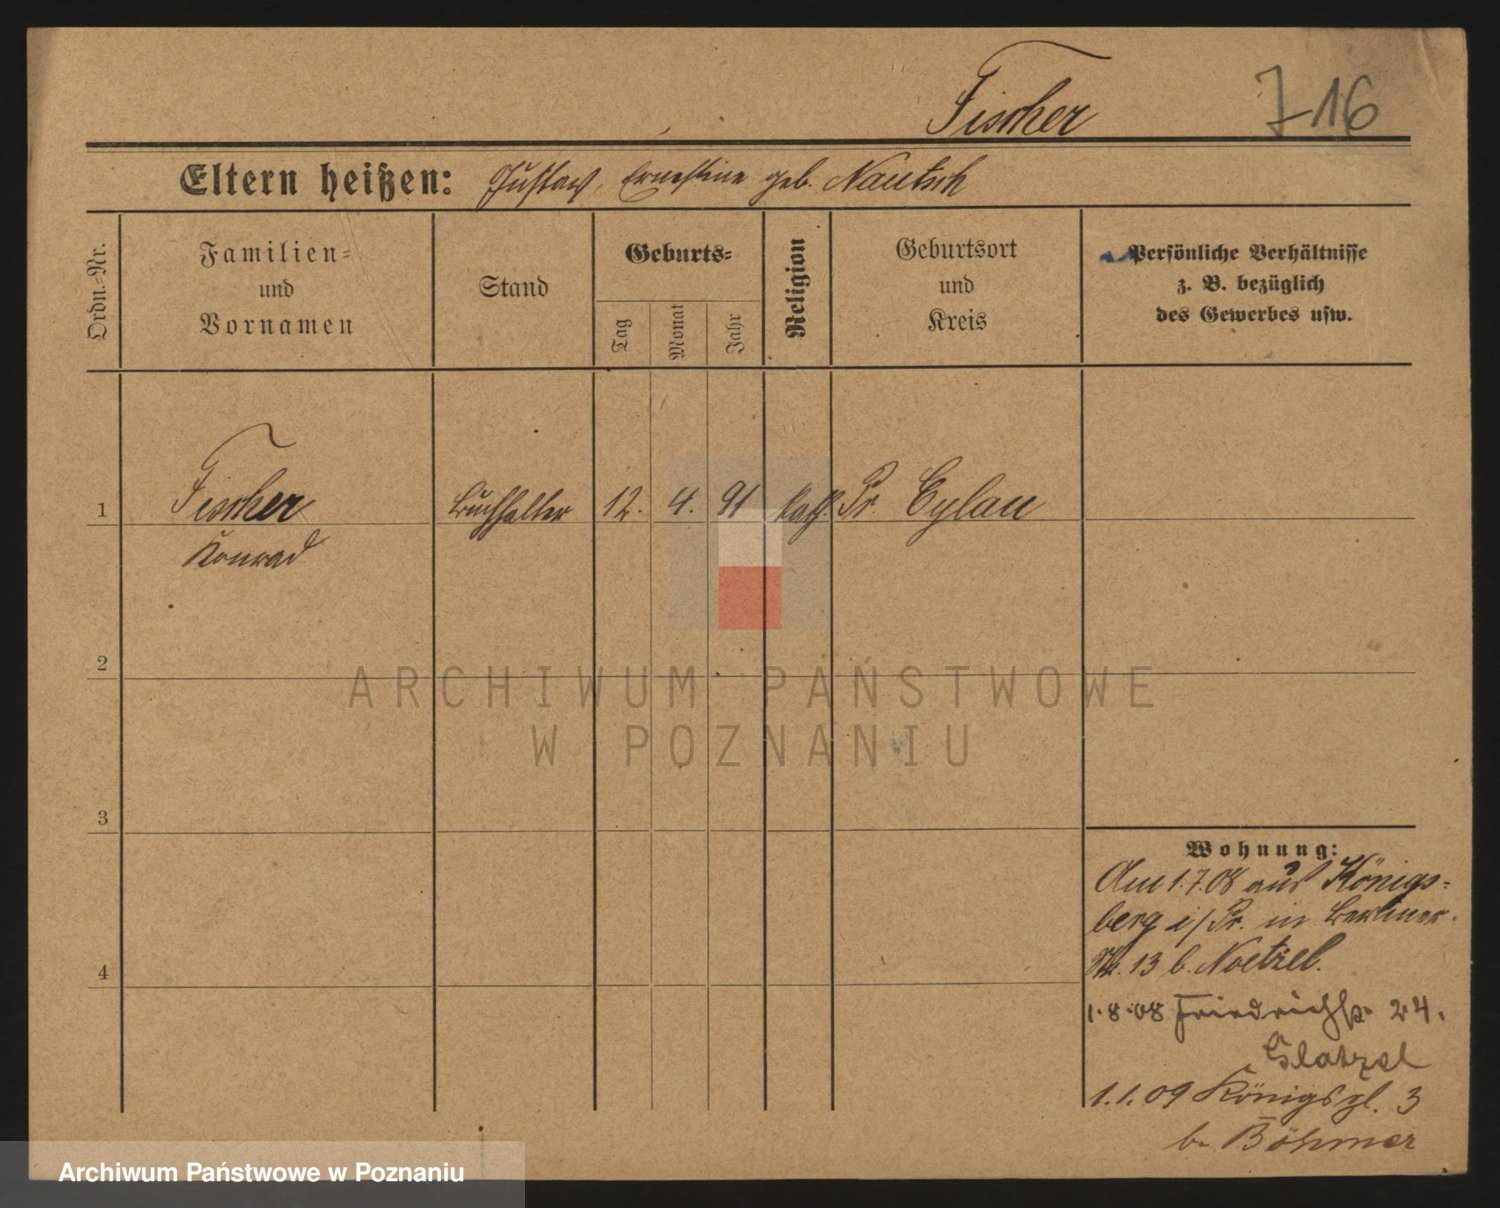 Fischer
716
Eltern heißen: Gustav, Ernestine geb. Nautsch
Ordn.-Nr.
Familien- und Vornamen
Stand
Geburts-
Tag
Monat
Jahr
Religion
Geburtsort und Kreis
Persönliche Verhältnisse
z. B. bezüglich
des Gewerbes usw.
1 Fischer Buchhalter 12. 4. 91 kath Pr. Eylau
Konrad
2
3
4
Wohnung:
Am 1.7.08 aus Königs-
berg i/Pr. in Berliner-
Str. 13 b. Noetzel.
1.8.08 Friedrichstr. 24.
Glatzel
1.1.09 Königspl. 3
b. Böhmer
ARCHIWUM PAŃSTWOWE
W POZNANIU
Archiwum Państwowe w Poznaniu